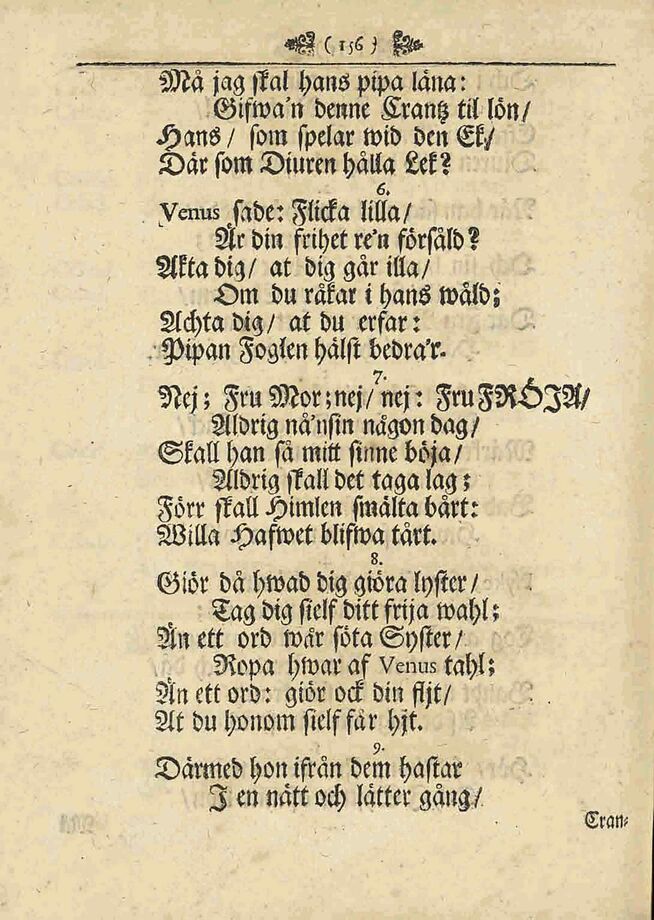 ( 156 )
Må jag skal hans pipa låna:
Gifwa'n denne Crantz til lön/
Hans / som spelar wid den Ek/
Där som Diuren hålla Lek?
6.
Venus sade: Flicka lilla/
Är din frihet re'n försåld?
Akta dig/ at dig går illa/
Om du råkar i hans wåld;
Achta dig/ at du erfar:
Pipan Foglen hälst bedra'r.
7.
Nej; Fru Mor; nej/ nej: Fru FRÖJA/
Aldrig nå'nsin någon dag/
Skall han så mitt sinne böja/
Aldrig skall det taga lag;
Förr skall Himlen smälta bårt:
Willa Hafwet blifwa tårt.
8.
Giör då hwad dig giöra lyster/
Tag dig sielf ditt frija wahl;
Än ett ord wår söta Syster/
Ropa hwar af Venus tahl;
Än ett ord: giör ock din fljt/
At du honom sielf får hjt.
9.
Därmed hon ifrån dem hastar
I en nätt och lätter gång/
Cran-